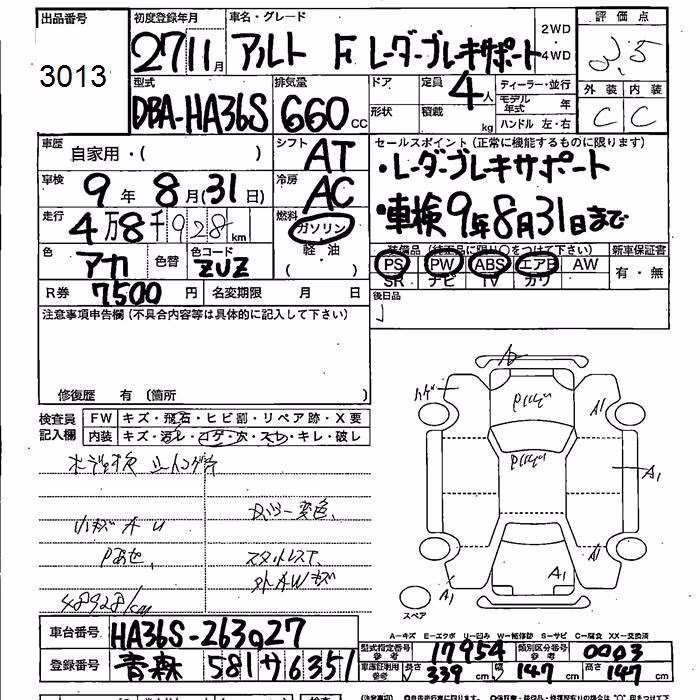 出品番号 初度登録年月 車名・グレード 2WD・4WD 評価点
3013 27 11月 アルト F レーダーブレーキサポート 3.5
型式 排気量 ドア 定員 ディーラー・並行 外装 内装
DBA-HA36S 660cc 形状 積載 4人 kg モデル年式 年 ハンドル 左・右 C C
車歴 自家用・( ) シフト AT セールスポイント(正常に機能するものに限ります)
車検 9年8月(31日) 冷房 AC ・レーダーブレーキサポート
走行 4万8千928km 燃料 ガソリン ・車検9年8月31日まで
軽・油
( ・ )
色 アカ 色替 色コード ZUZ 装備品(純正品に限り○をつけて下さい) 新車保証書
PS PW ABS エアB AW 有・無
SR ナビ TV カワ
R券 7500円 名変期限 月 日 後日品
注意事項申告欄(不具合内容等は具体的に記入して下さい)
修復歴 有 (箇所
検査員記入欄 FW キズ・飛石・ヒビ割・リペア跡・X要
内装 キズ・汚レ・コゲ・穴・スレ・キレ・破レ
小キズ A U
変色
Pあせ スタットレス下
外AWキズ
48928/km
A A1 A1 A1 A1 A1
スペア
A-キズ E-エクボ U-凹み W-補修跡 S-サビ C-腐食 XX-交換済
車台番号 HA36S-263027
型式指定番号 参考 17954 類別区分番号 参考 0003
登録番号 青森 581 サ 6351
車庫証明用 参考 長さ 339cm 幅 147cm 高さ 147cm